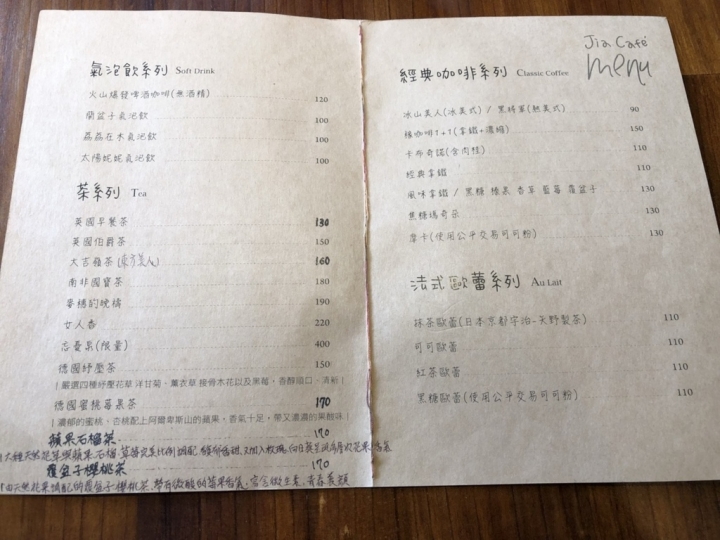 氣泡飲系列 Soft Drink
火山爆發啤酒咖啡(無酒精) 120
蘭盆子氣泡飲 100
荔荔在木氣泡飲 100
太陽妮妮氣泡飲 100
茶系列 Tea
英國早餐茶 130
英國伯爵茶 150
大吉嶺茶(東方美人) 160
南非國寶茶 180
麥穗的晚禱 190
女人香 220
忘憂果(限量) 400
德國紓壓茶 150
|嚴選四種紓壓花草 洋甘菊、薰衣草 接骨木花以及黑莓,香醇順口、清新|
德國蜜桃莓果茶 170
|濃郁的蜜桃、杏桃配上阿爾卑斯山的蘋果,香氣十足,帶又濃濃的果酸味|
蘋果石榴茶 170
覆盆子櫻桃茶 170
Jia Café
menu
經典咖啡系列 Classic Coffee
冰山美人(冰美式) / 黑將軍(熱美式) 90
緣咖啡1+1(拿鐵+濃縮) 150
卡布奇諾(含肉桂) 110
經典拿鐵 110
風味拿鐵 / 黑糖 榛果 香草 藍莓 覆盆子 130
焦糖瑪奇朵 130
摩卡(使用公平交易可可粉) 130
法式歐蕾系列 Au Lait
抹茶歐蕾(日本京都宇治-天野製茶) 110
可可歐蕾 110
紅茶歐蕾 110
黑糖歐蕾(使用公平交易可可粉) 110